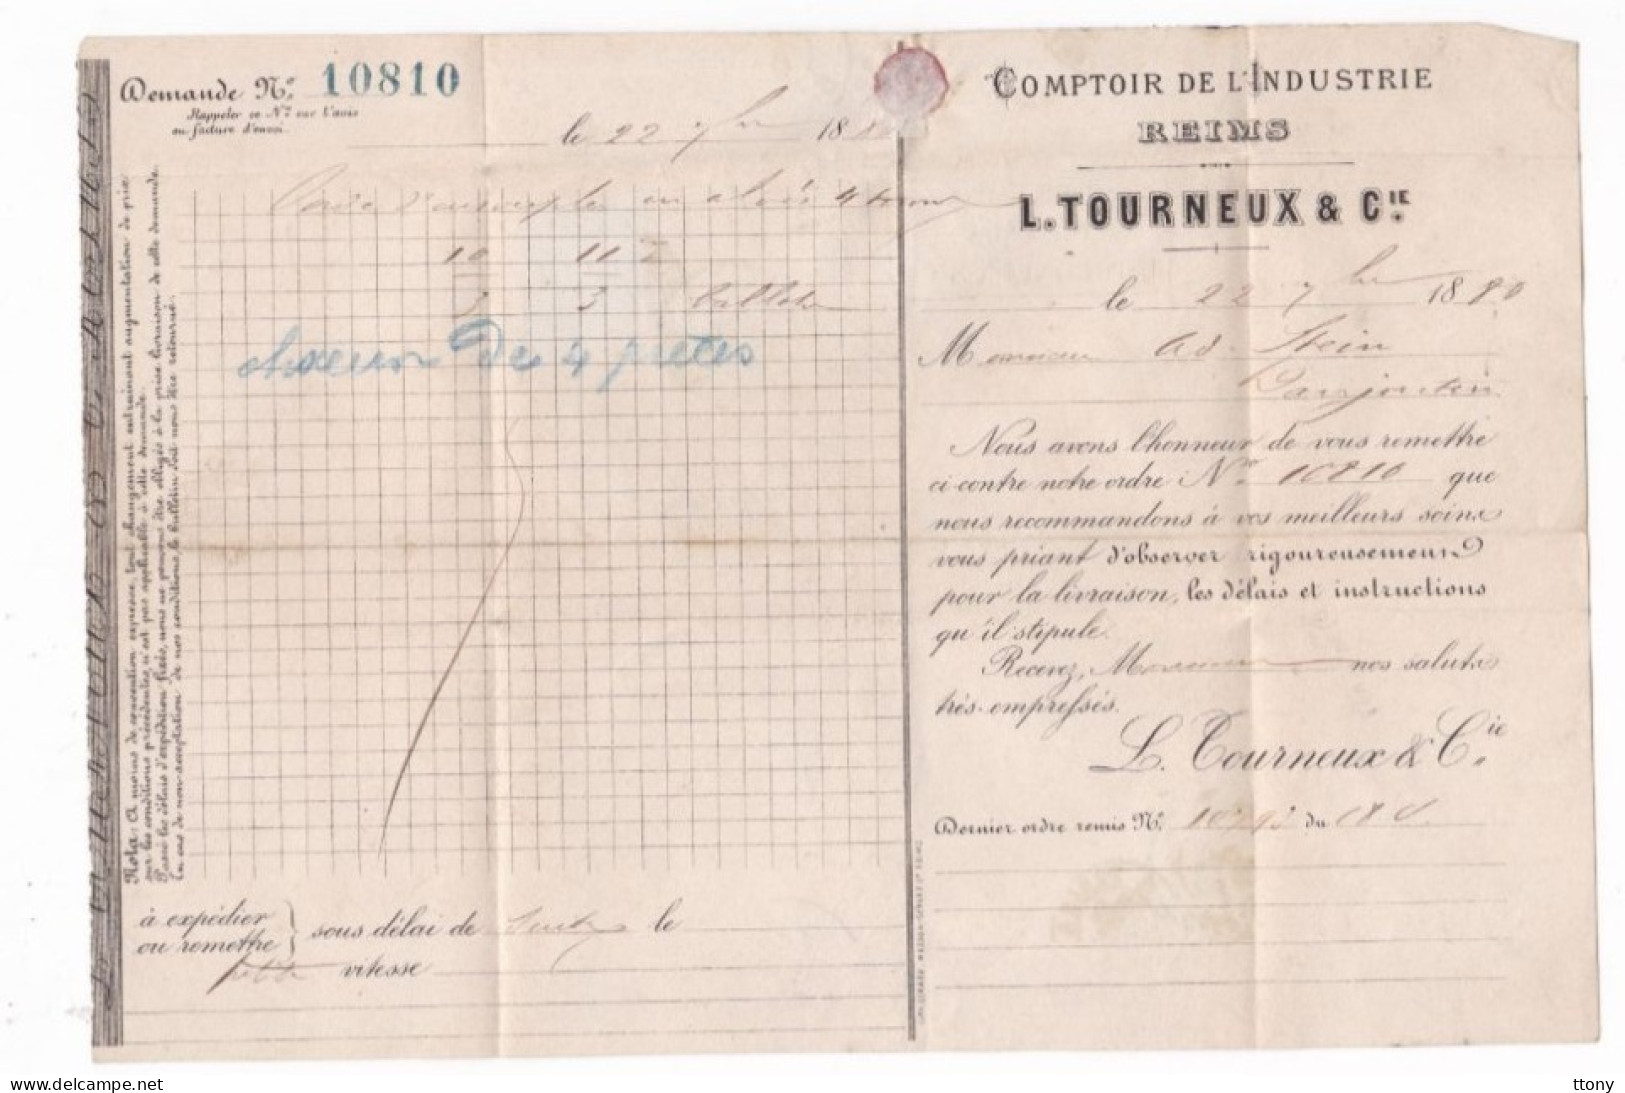 Demande N.º 10810
Rappeler ce Nº sur l'avis
ou facture d'envoi.
le 22 7bre 1880
en 4
10 11
3 3
des 4 pièces
Nota: A moins de convention expresse, tout changement entraînant augmentation de prix
sur les conditions précédentes, n'est pas applicable à cette demande.
Passé les délais d'expédition fixés, nous ne pouvons être obligés à la prise livraison de cette demande.
En cas de non acceptation de nos conditions, le bulletin doit nous être retourné.
à expédier
ou remettre } sous délai de suite le
petite vitesse
COMPTOIR DE L'INDUSTRIE
REIMS
L. TOURNEUX & CIE.
le 22 7bre 1880
Monsieur Ad. Stein
Danjoutin
Nous avons l'honneur de vous remettre
ci-contre notre ordre Nº 10810 que
nous recommandons à vos meilleurs soins
vous priant d'observer rigoureusement
pour la livraison, les délais et instructions
qu'il stipule.
Recevez, Monsieur nos saluts
très-empressés.
L. Tourneux & Cie.
Dernier ordre remis Nº. 10793 du 18
delcampe.net
ttony